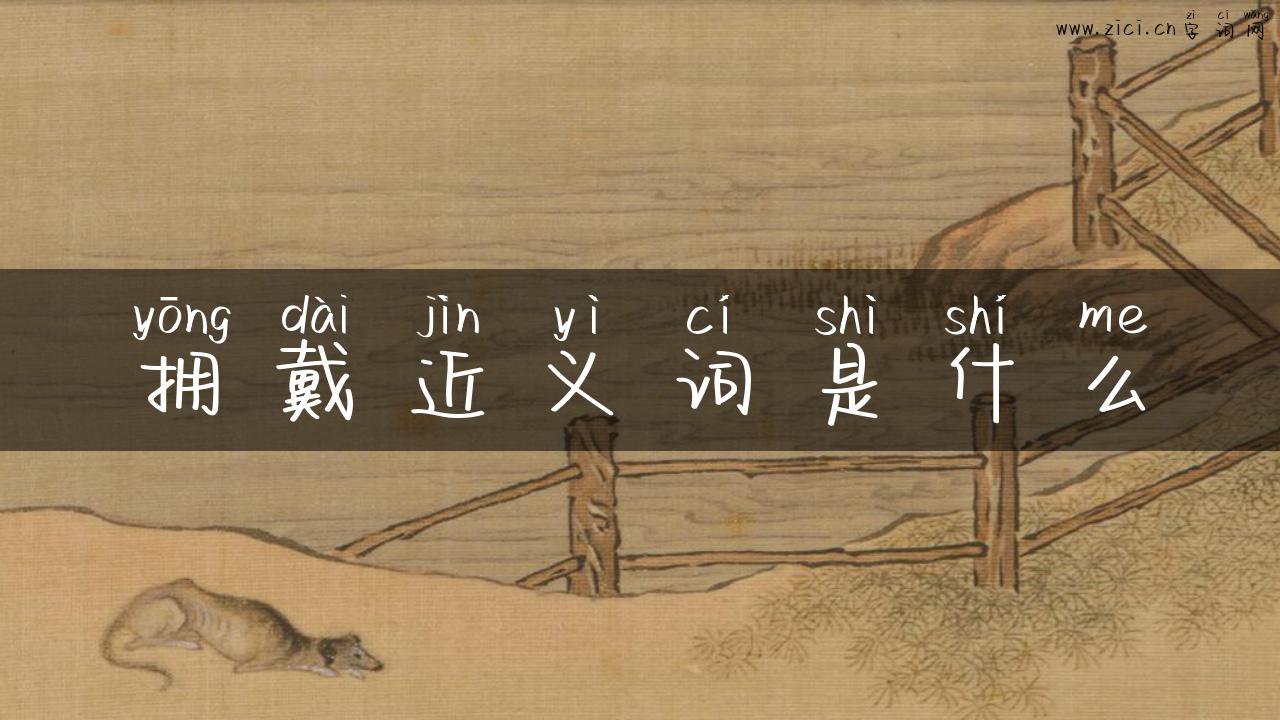 zi ci wang
www.zici.cn 字词网
yōng dài jìn yì cí shì shí me
拥戴近义词是什么